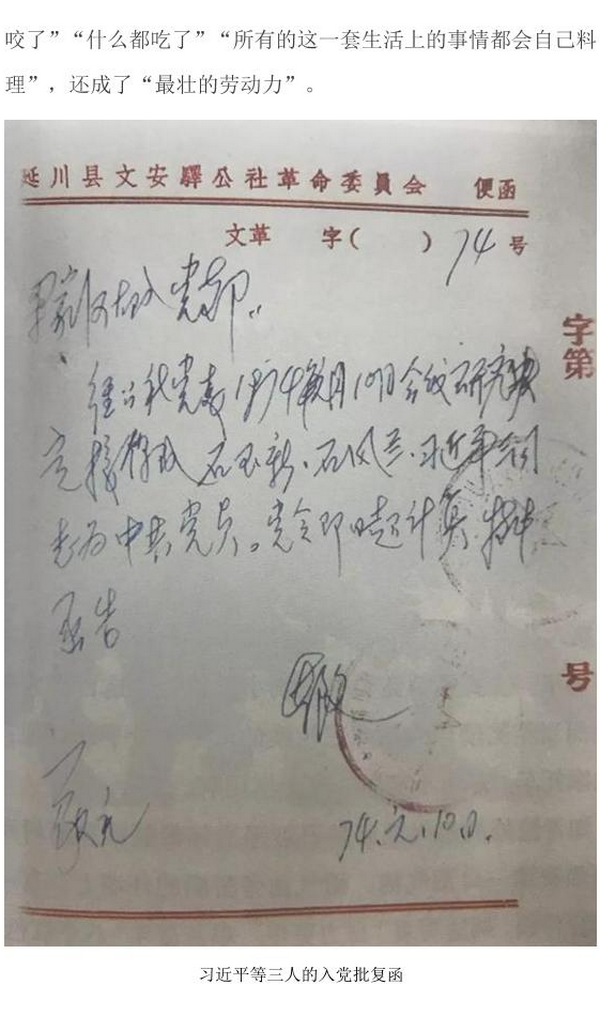 咬了”“什么都吃了”“所有的这一套生活上的事情都会自己料
理”，还成了“最壮的劳动力”。
延川县文安驛公社革命委員会 便函
文革 字( ) 74 号
梁家河大队党部
字第
经公社党委1974年元月10日会议研究决
定接收石玉新、石凤兰、习近平三同
志为中共党员。党令即日起计算 特此
函告
号
74.元.10日.
习近平等三人的入党批复函